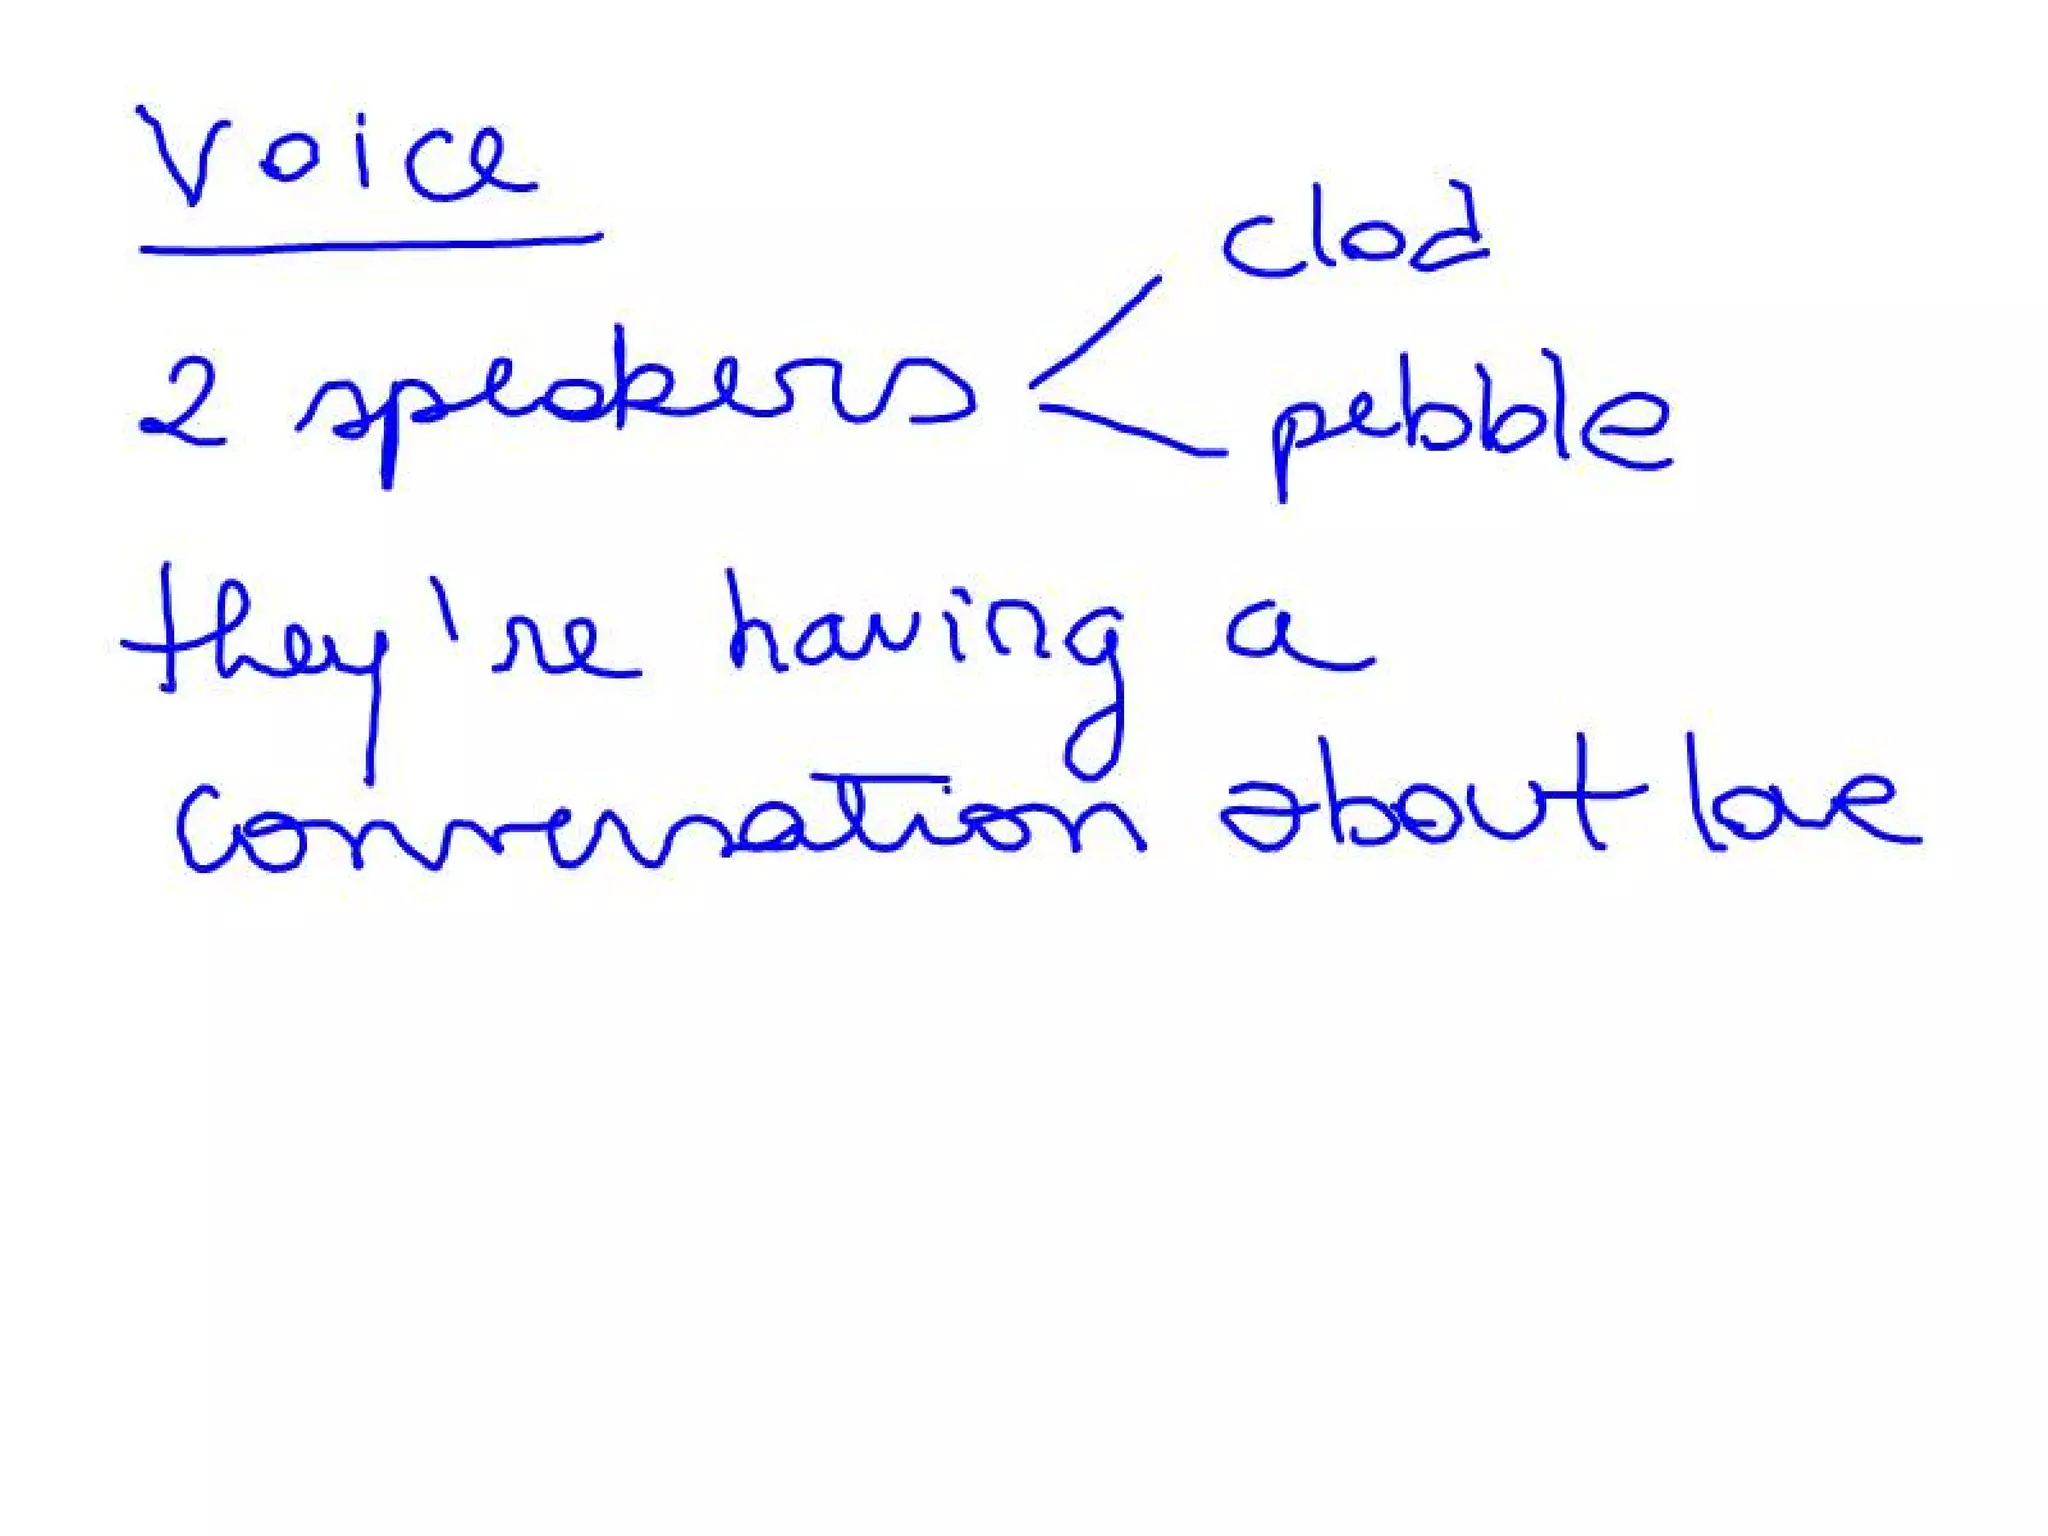 Voice
2 speakers < clod
pebble
they're having a
conversation about love